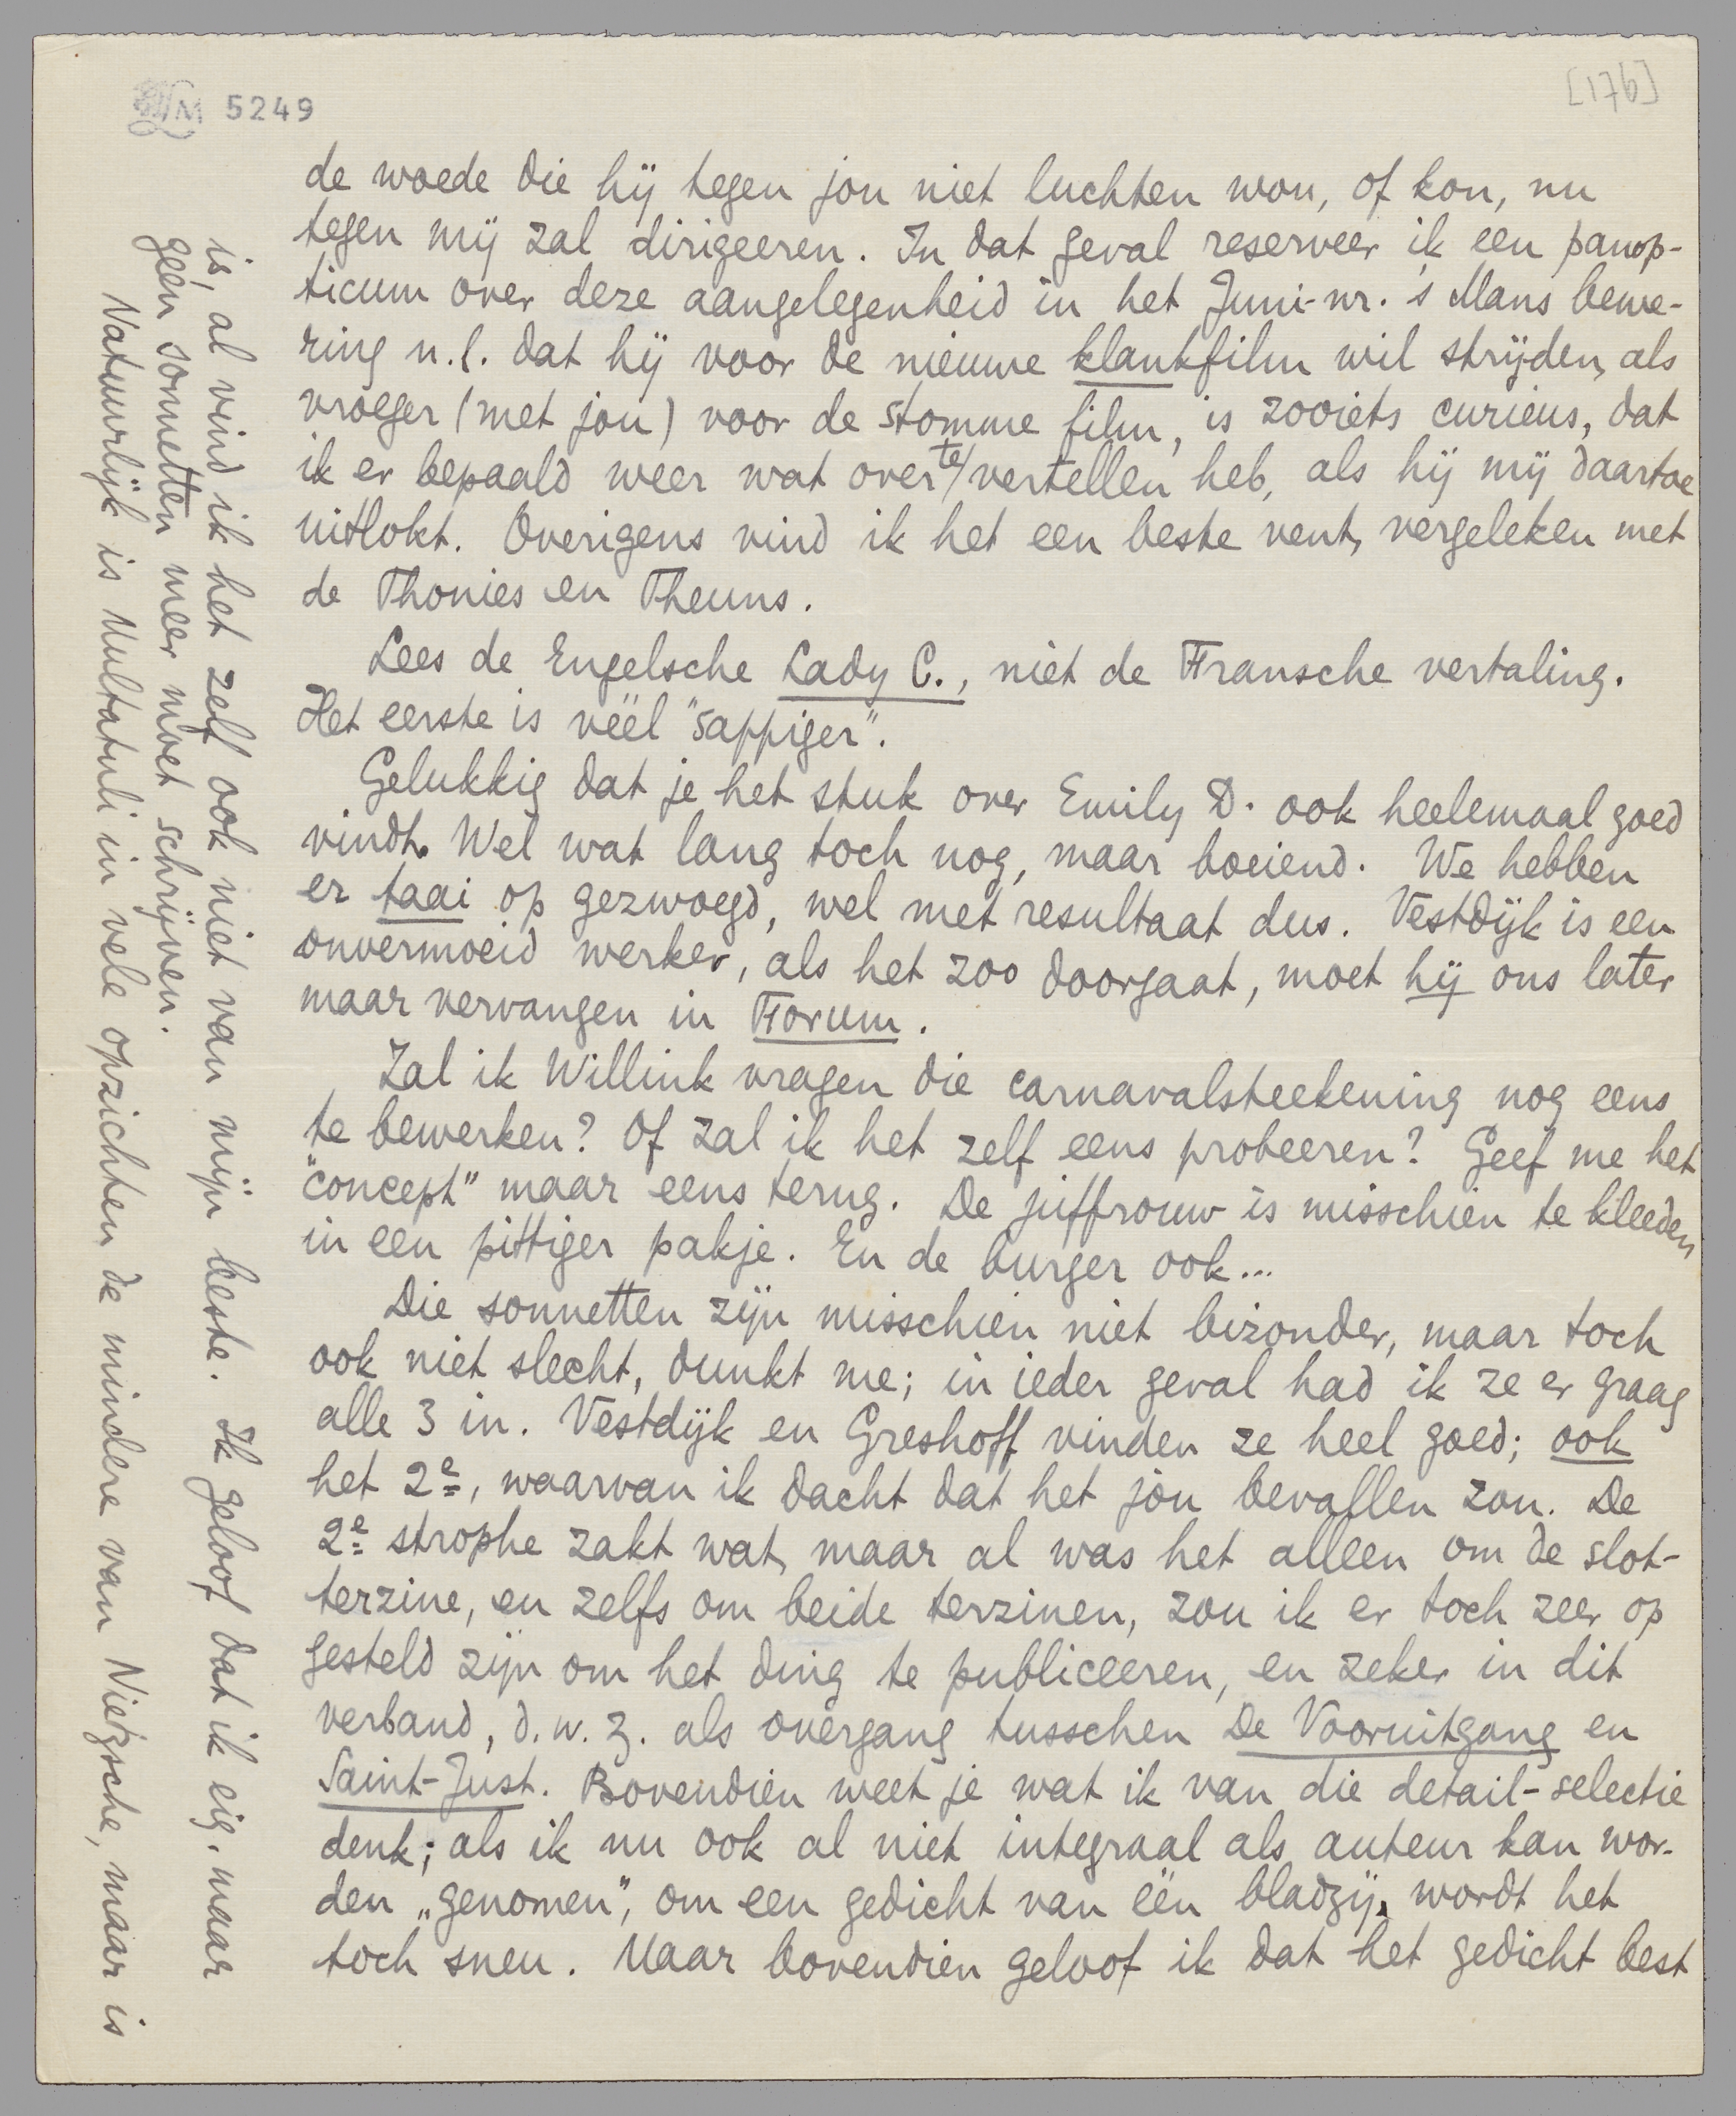 LM 5249
[176]
de woede die hij tegen jou niet luchten wou, of kon, nu
tegen mij zal dirigeeren. In dat geval reserveer ik een panop-
ticum over deze aangelegenheid in het Juni-nr. 's Mans bewe-
ring n.l. dat hij voor de nieuwe klankfilm wil strijden, als
vroeger (met jou) voor de stomme film, is zooiets curieus, dat
ik er bepaald weer wat over te vertellen heb, als hij mij daartoe
uitlokt. Overigens vind ik het een beste vent, vergeleken met
de Thonies en Theuns.
Lees de Engelsche Lady C., niet de Fransche vertaling.
Het eerste is véél "sappiger".
Gelukkig dat je het stuk over Emily D. ook heelemaal goed
vindt. Wel wat lang toch nog, maar boeiend. We hebben
er taai op gezwoegd, wel met resultaat dus. Vestdijk is een
onvermoeid werker, als het zoo doorgaat, moet hij ons later
maar vervangen in Forum.
Zal ik Willink vragen die carnavalsteekening nog eens
te bewerken? Of zal ik het zelf eens probeeren? Geef me het
"concept" maar eens terug. De juffrouw is misschien te kleeden
in een pittiger pakje. En de burger ook...
Die sonnetten zijn misschien niet bizonder, maar toch
ook niet slecht, dunkt me; in ieder geval had ik ze er graag
alle 3 in. Vestdijk en Greshoff vinden ze heel goed; ook
het 2e, waarvan ik dacht dat het jou bevallen zou. De
2e strophe zakt wat, maar al was het alleen om de slot-
terzine, en zelfs om beide terzinen, zou ik er toch zeer op
gesteld zijn om het ding te publiceeren, en zeker in dit
verband, d.w.z. als overgang tusschen De Vooruitgang en
Saint-Just. Bovendien weet je wat ik van die detail-selectie
denk; als ik nu ook al niet integraal als auteur kan wor-
den „genomen", om een gedicht van één bladzij, wordt het
toch sneu. Maar bovendien geloof ik dat het gedicht best
is, al vind ik het zelf ook niet van mijn beste. Ik geloof dat ik eig. maar
géén sonnetten meer moet schrijven.
Natuurlijk is Multatuli in vele opzichten de mindere van Nietzsche, maar is